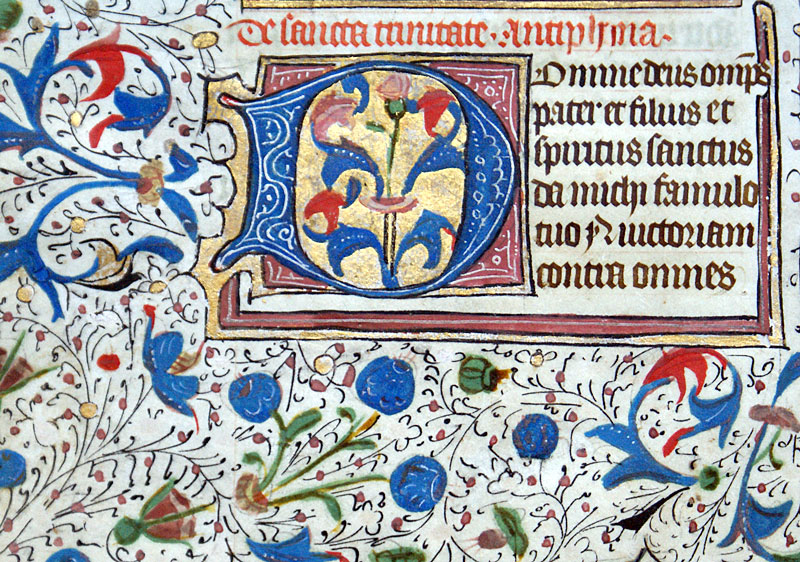 De sancta trinitate. Antiphona.
Domine deus omps
pater et filius et
spiritus sanctus
da michi famulo
tuo N uictoriam
contra omnes